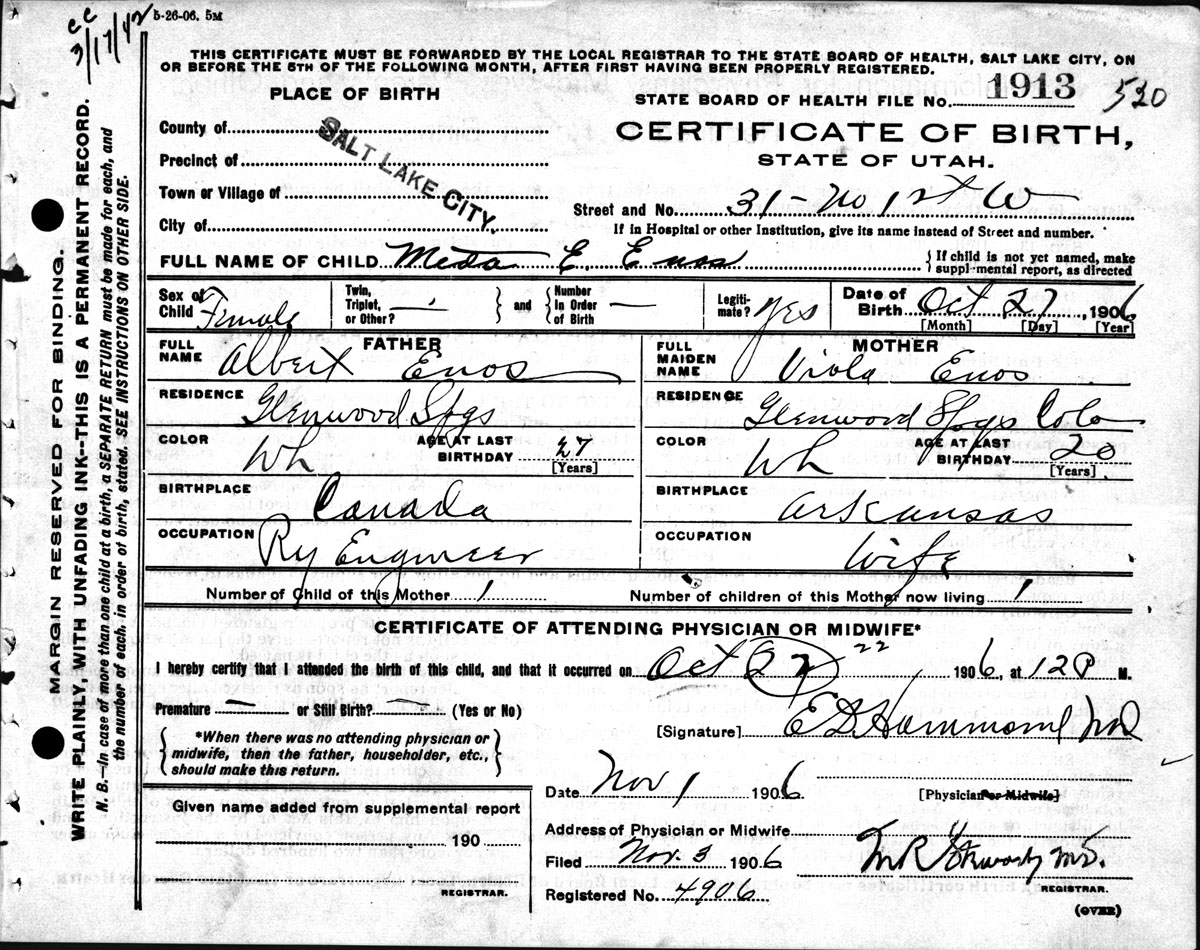 cc
3/17/42
5-26-06. 5M
THIS CERTIFICATE MUST BE FORWARDED BY THE LOCAL REGISTRAR TO THE STATE BOARD OF HEALTH, SALT LAKE CITY, ON
OR BEFORE THE 5TH OF THE FOLLOWING MONTH, AFTER FIRST HAVING BEEN PROPERLY REGISTERED.
PLACE OF BIRTH
STATE BOARD OF HEALTH FILE No. 1913 530
County of
CERTIFICATE OF BIRTH,
STATE OF UTAH.
Precinct of
SALT LAKE CITY.
Town or Village of
Street and No. 31 - No 1st W
City of
If in Hospital or other Institution, give its name instead of Street and number.
FULL NAME OF CHILD Meda E. Enos
{ If child is not yet named, make
supplemental report, as directed
Sex of Child Female
Twin, Triplet, or Other? —
and
Number In Order of Birth —
Legiti- mate? yes
Date of Birth Oct 27, 1906
[Month] [Day] [Year]
FATHER
FULL NAME Albert Enos
RESIDENCE Glenwood Spgs
COLOR Wh
AGE AT LAST BIRTHDAY 27
[Years]
BIRTHPLACE Canada
OCCUPATION Ry Engineer
MOTHER
FULL MAIDEN NAME Viola Enos
RESIDENCE Glenwood Spgs Colo
COLOR Wh
AGE AT LAST BIRTHDAY 20
[Years]
BIRTHPLACE Arkansas
OCCUPATION Wife
Number of Child of this Mother 1
Number of children of this Mother now living 1
CERTIFICATE OF ATTENDING PHYSICIAN OR MIDWIFE*
I hereby certify that I attended the birth of this child, and that it occurred on Oct 27 22 1906, at 12 P M.
Premature — or Still Birth? — (Yes or No)
[Signature] E D Hammond MD
*When there was no attending physician or
midwife, then the father, householder, etc.,
should make this return.
Date Nov 1 1906
[Physician or Midwife]
Given name added from supplemental report
190
REGISTRAR.
Address of Physician or Midwife
Filed Nov. 3 1906
M.D.
REGISTRAR.
Registered No. 4906
(OVER)
MARGIN RESERVED FOR BINDING.
WRITE PLAINLY, WITH UNFADING INK--THIS IS A PERMANENT RECORD.
N. B.—In case of more than one child at a birth, a SEPARATE RETURN must be made for each, and
the number of each, in order of birth, stated. SEE INSTRUCTIONS ON OTHER SIDE.